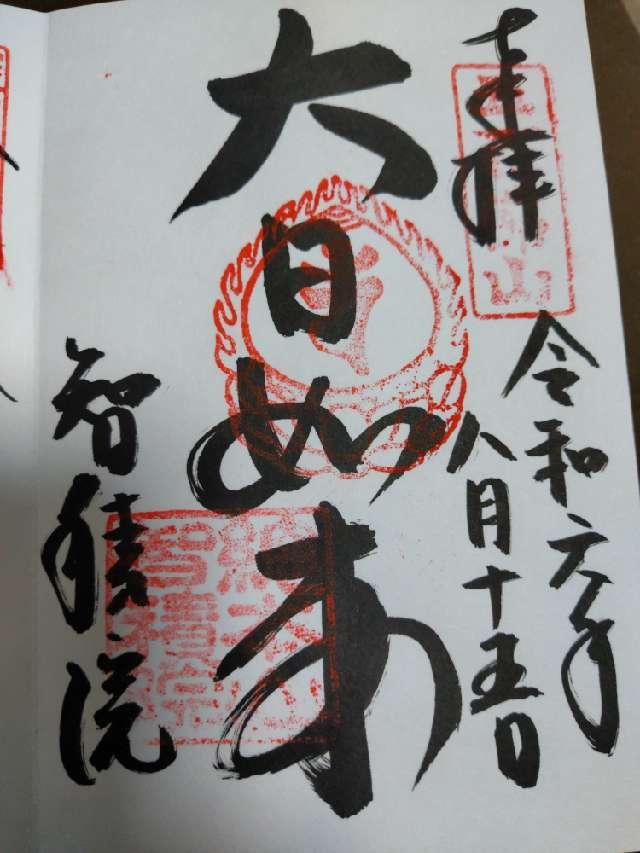 奉拝
令和六年
八月十五日
大日如来
智積院